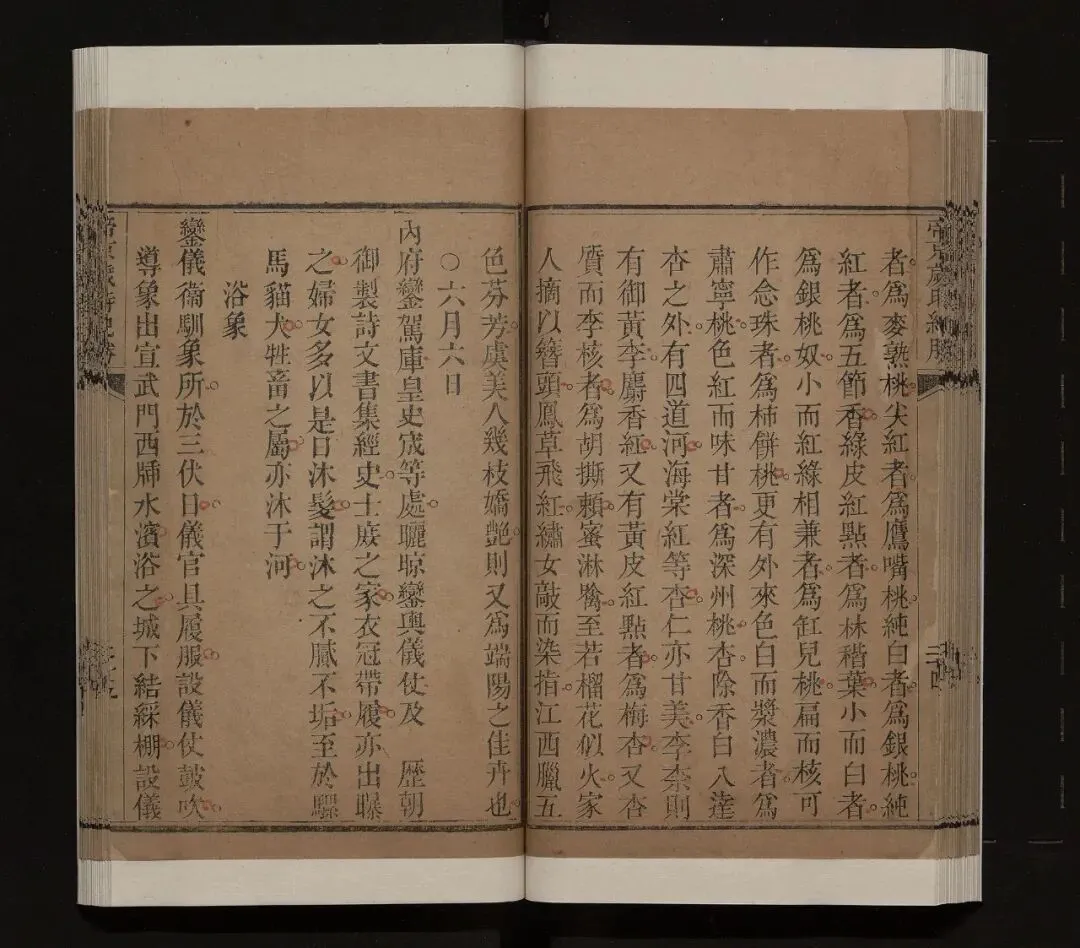 者爲麥熟桃尖紅者爲鷹嘴桃純白者爲銀桃純
紅者爲五節香綠皮紅點者爲林稭葉小而白者
爲銀桃奴小而紅綠相兼者爲缸兒桃扁而核可
作念珠者爲柿餅桃更有外來色白而漿濃者爲
肅寧桃色紅而味甘者爲深州桃杏除香白八達
杏之外有四道河海棠紅等杏仁亦甘美李柰則
有御黃李麝香紅又有黃皮紅點者爲梅杏又杏
質而李核者爲胡撕賴蜜淋噙至若榴花似火家
人摘以簪頭鳳草飛紅繡女敲而染指江西臘五
色芬芳虞美人幾枝嬌艶則又爲端陽之佳卉也
○六月六日
內府鑾駕庫皇史宬等處曬晾鑾輿儀仗及 歷朝
御製詩文書集經史士庶之家衣冠帶履亦出曝
之婦女多以是日沐髮謂沐之不膩不垢至於騾
馬貓犬牲畜之屬亦沐于河
浴象
鑾儀衞馴象所於三伏日儀官具履服設儀仗鼓吹
導象出宣武門西牐水濱浴之城下結綵棚設儀